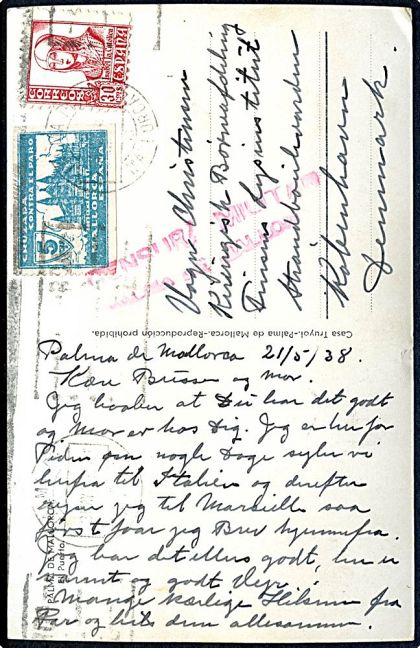 CORREOS
30 CTS
ISABEL LA CATOLICA
ESPAÑA
CRUZADA
CONTRA EL PARO
5
MALLORCA
ESPAÑA
CENSURA MILITAR
Christensen
Kirurgisk Børneafdeling
Finsens Lysinstitut
Strandboulevarden
København
Denmark.
Casa Truyol.-Palma de Mallorca.-Reproducción prohibida.
PALMA DE MALLORCA
El Puerto
Palma de Mallorca 21/5/38.
Kære Busser og mor.
Jeg haaber at Du har det godt
og Mor er hos Dig. Jeg er her for
Tiden om nogle Dage sejler vi
herfra til Italien og derefter
rejser jeg til Marseille saa
faar jeg Brev hjemmefra.
Jeg har det ellers godt, her er
varmt og godt Vejr.
Mange kærlige Hilsner fra
Far og hils dem allesammen.